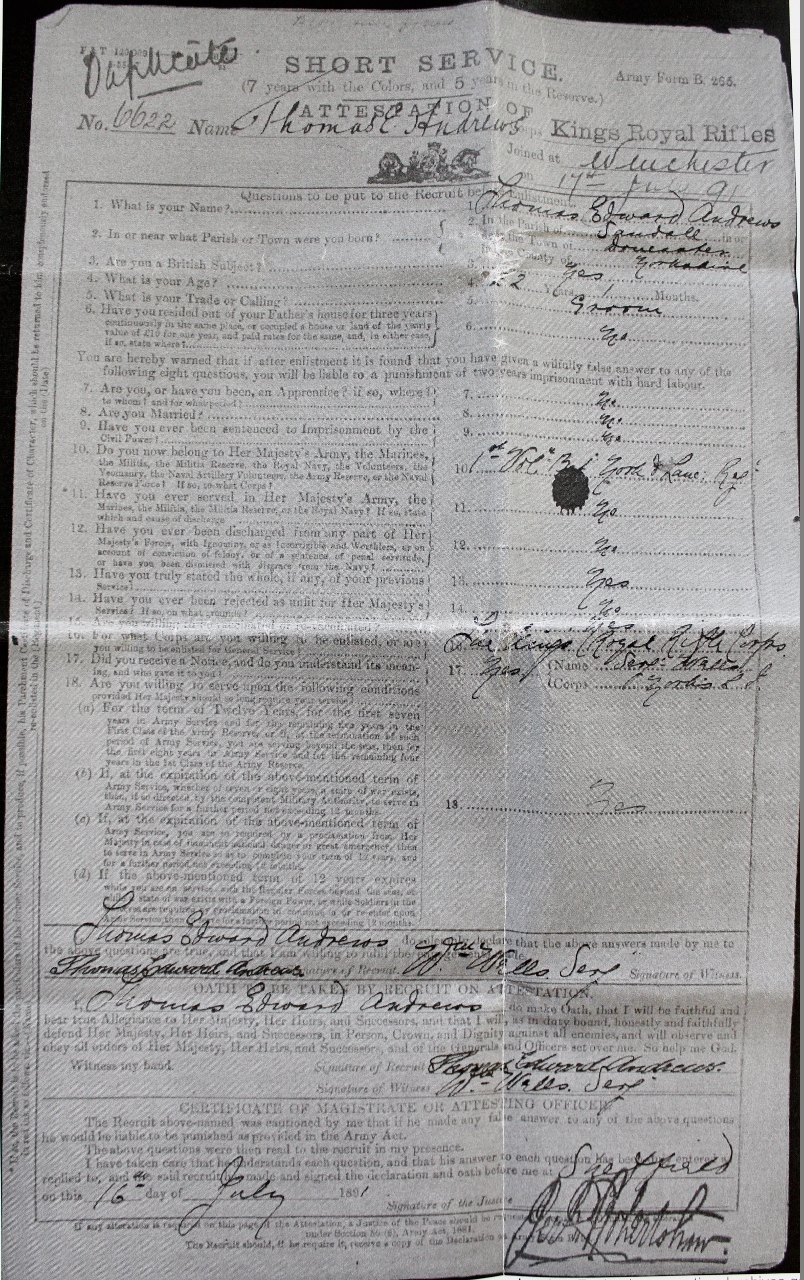 Duplicate
SHORT SERVICE.
Army Form B. 265.
(7 years with the Colors, and 5 years in the Reserve.)
ATTESTATION OF
No. 6622 Name Thomas E Andrews Corps Kings Royal Rifles
Joined at Winchester
on 17th July 91
Questions to be put to the Recruit before Enlistment.
1. What is your Name? 1. Thomas Edward Andrews
2. In or near what Parish or Town were you born? 2. In the Parish of Sandall in or
near the Town of Doncaster
in the County of Yorkshire
3. Are you a British Subject? 3. Yes
4. What is your Age? 4. 22 Years 1 Months.
5. What is your Trade or Calling? 5. Groom
6. Have you resided out of your Father's house for three years
continuously in the same place, or occupied a house or land of the yearly
value of £10 for one year, and paid rates for the same, and, in either case,
if so, state where? 6. No
You are hereby warned that if after enlistment it is found that you have given a wilfully false answer to any of the
following eight questions, you will be liable to a punishment of two years imprisonment with hard labour.
7. Are you, or have you been, an Apprentice? if so, where?
to whom? and for what period? 7. No
8. Are you Married? 8. No
9. Have you ever been sentenced to Imprisonment by the
Civil Power? 9. No
10. Do you now belong to Her Majesty's Army, the Marines,
the Militia, the Militia Reserve, the Royal Navy, the Volunteers, the
Yeomanry, the Naval Artillery Volunteers, the Army Reserve, or the Naval
Reserve Force? If so, to what Corps? 10. 1st Vol. Bn York & Lanc: Reg
11. Have you ever served in Her Majesty's Army, the
Marines, the Militia, the Militia Reserve, or the Royal Navy? If so, state
which and cause of discharge 11. No
12. Have you ever been discharged from any part of Her
Majesty's Forces, with Ignominy, or as Incorrigible and Worthless, or on
account of conviction of felony, or of a sentence of penal servitude,
or have you been dismissed with disgrace from the Navy? 12. No
13. Have you truly stated the whole, if any, of your previous
Service? 13. Yes
14. Have you ever been rejected as unfit for Her Majesty's
Service? If so, on what grounds? 14. No
Yes
16. For what Corps are you willing to be enlisted, or are
you willing to be enlisted for General Service? The Kings Royal Rifle Corps
17. Did you receive a Notice, and do you understand its mean-
ing, and who gave it to you? 17. Yes (Name Sergt Walls
(Corps Yorks L I
18. Are you willing to serve upon the following conditions
provided Her Majesty should so long require your service?
(a) For the term of Twelve Years, for the first seven
years in Army Service and for the remaining five years in the
First Class of the Army Reserve, or if, at the termination of such
period of Army Service, you are serving beyond the seas, then for
the first eight years in Army Service and for the remaining four
years in the 1st Class of the Army Reserve.
(b) If, at the expiration of the above-mentioned term of
Army Service, whether of seven or eight years, a state of war exists,
then, if so directed by the competent Military Authority, to serve in
Army Service for a further period not exceeding 12 months. 18. Yes
(c) If, at the expiration of the above-mentioned term of
Army Service, you are so required by a proclamation from Her
Majesty in case of imminent national danger or great emergency, then
to serve in Army Service so as to complete your term of 12 years, and
for a further period not exceeding 12 months.
(d) If the above-mentioned term of 12 years expires
while you are on service with the Regular Forces beyond the seas, or
Thomas Edward Andrews do solemnly declare that the above answers made by me to
the above questions are true, and that I am willing to fulfil the engagements
Thomas Edward Andrews Signature of Recruit. Wm Walls Sergt Signature of Witness.
OATH TO BE TAKEN BY RECRUIT ON ATTESTATION.
I, Thomas Edward Andrews do make Oath, that I will be faithful and
bear true Allegiance to Her Majesty, Her Heirs, and Successors, and that I will, as in duty bound, honestly and faithfully
defend Her Majesty, Her Heirs, and Successors, in Person, Crown, and Dignity against all enemies, and will observe and
obey all orders of Her Majesty, Her Heirs, and Successors, and of the Generals and Officers set over me. So help me God.
Witness my hand. Signature of Recruit Thomas Edward Andrews.
Signature of Witness Wm Walls. Sergt
CERTIFICATE OF MAGISTRATE OR ATTESTING OFFICER.
The Recruit above-named was cautioned by me that if he made any false answer to any of the above questions
he would be liable to be punished as provided in the Army Act.
The above questions were then read to the recruit in my presence.
I have taken care that he understands each question, and that his answer to each question has been duly entered as
replied to, and the said recruit has made and signed the declaration and oath before me at Sheffield
on this 16th day of July 1891
Signature of the Justice